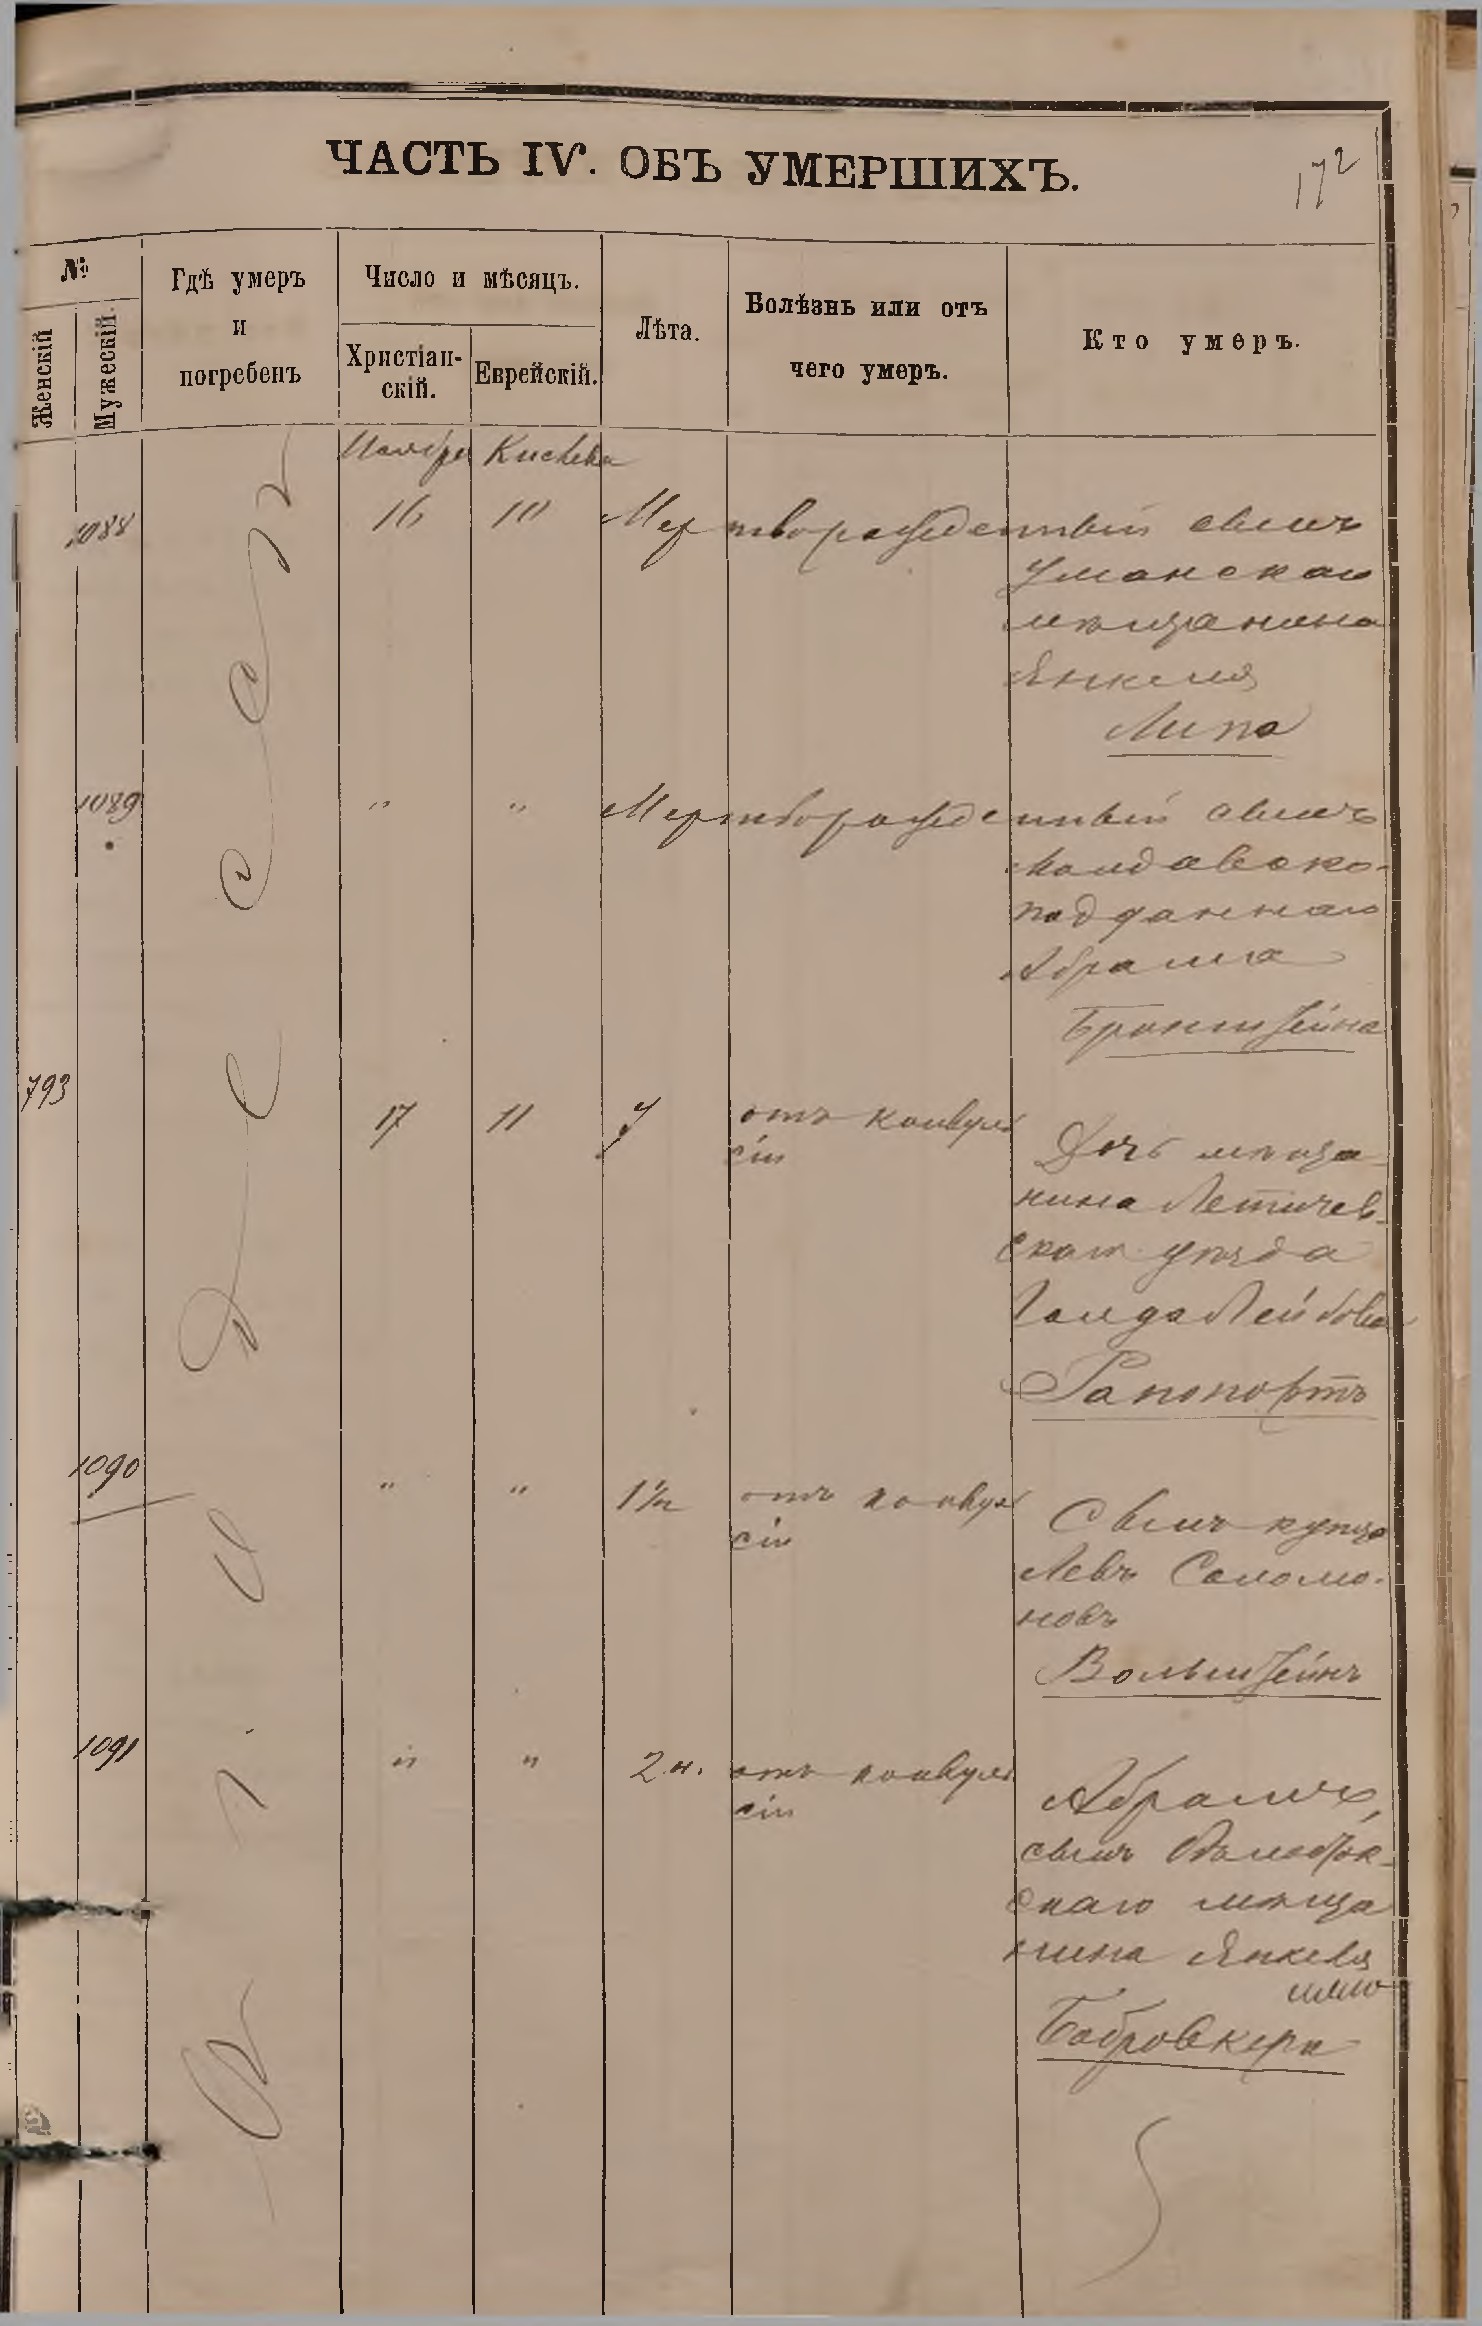 ЧАСТЬ IV. ОБЪ УМЕРШИХЪ.
172
№
Женскій
Мужескій.
Гдѣ умеръ
и
погребенъ
Число и мѣсяцъ.
Христіан-
скій.
Еврейскій.
Лѣта.
Болѣзнь или отъ
чего умеръ.
Кто умеръ.
Одесса
Ноября Кислева
1088 16 10 Мертворожденный сынъ
Уманскаго
мѣщанина
Янкеля
Липа
1089 " " Мертворожденный сынъ
Молдавско-
подданнаго
Абрама
Бронштейна
793
17 11 отъ конвуль
сіи
Дочь мѣща-
нина Летичев-
скаго уѣзда
Голда Лейбова
Рапопортъ
1090 " " 1½ отъ конвуль
сіи
Сынъ купца
Левъ Соломо-
новъ
Вольштейнъ
1091 " " 2 н. отъ конвуль
сіи
Абрамъ,
сынъ
скаго мѣща
нина Янкеля
Бобровкера